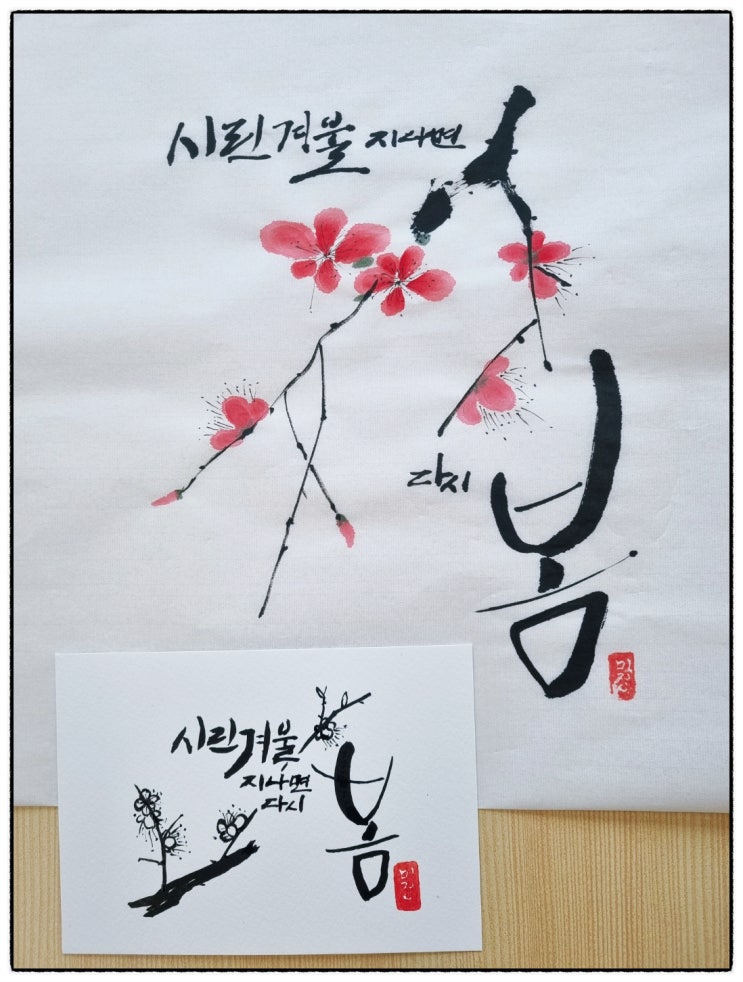 시린 겨울 지나면
다시
봄
시린 겨울
지나면
다시
봄